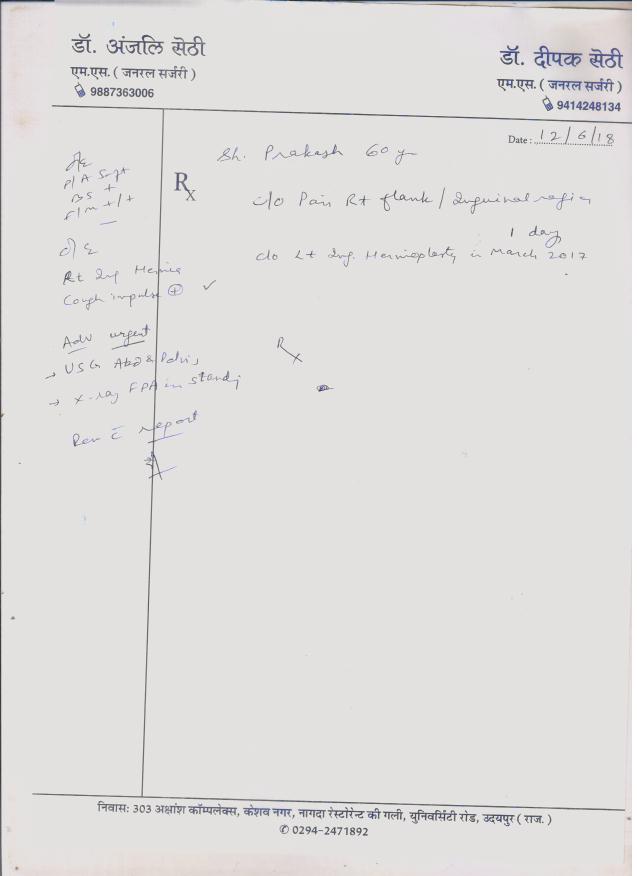 डॉ. अंजलि सेठी
एम.एस. ( जनरल सर्जरी )
9887363006
डॉ. दीपक सेठी
एम.एस. ( जनरल सर्जरी )
9414248134
Date : 12/6/18
Sh. Prakash 60 y
Rx
c/o Pain Rt flank / Inguinal region
1 day
c/o Lt Ing. Hernioplasty in March 2017
P/A Soft
BS +
F/M +/+
O/E
Rt Ing Hernia
Cough impulse ⊕ ✓
Adv urgent
→ USG Abd & Pelvis
→ X-ray FPA in standing
Rev c̄ report
Rx
निवास: 303 अक्षांश कॉम्पलेक्स, केशव नगर, नागदा रेस्टोरेन्ट की गली, युनिवर्सिटी रोड, उदयपुर ( राज. )
✆ 0294-2471892